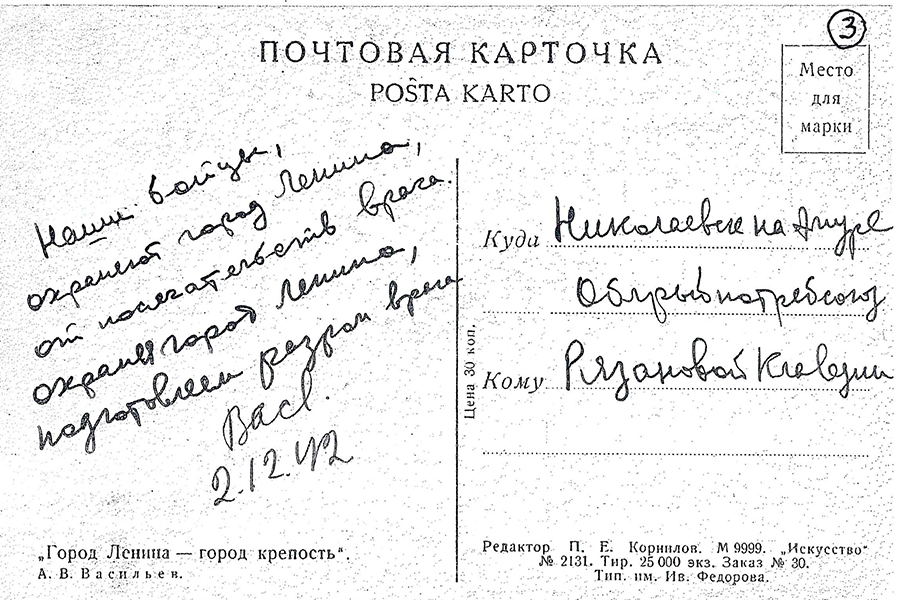 ПОЧТОВАЯ КАРТОЧКА
POŜTA KARTO
3
Место
для
марки
Наши бойцы,
охраняют город Ленина,
от посягательств врага.
Охраняя город Ленина,
подготовляем разгром врага
Васи.
2.12.42
„Город Ленина — город крепость“.
А. В. Васильев.
Цена 30 коп.
Куда Николаевск на Амуре
Облрыбпотребсоюз
Кому Рязановой Клавдии
Редактор П. Е. Корнилов. М 9999. „Искусство“
№ 2131. Тир. 25 000 экз. Заказ № 30.
Тип. им. Ив. Федорова.